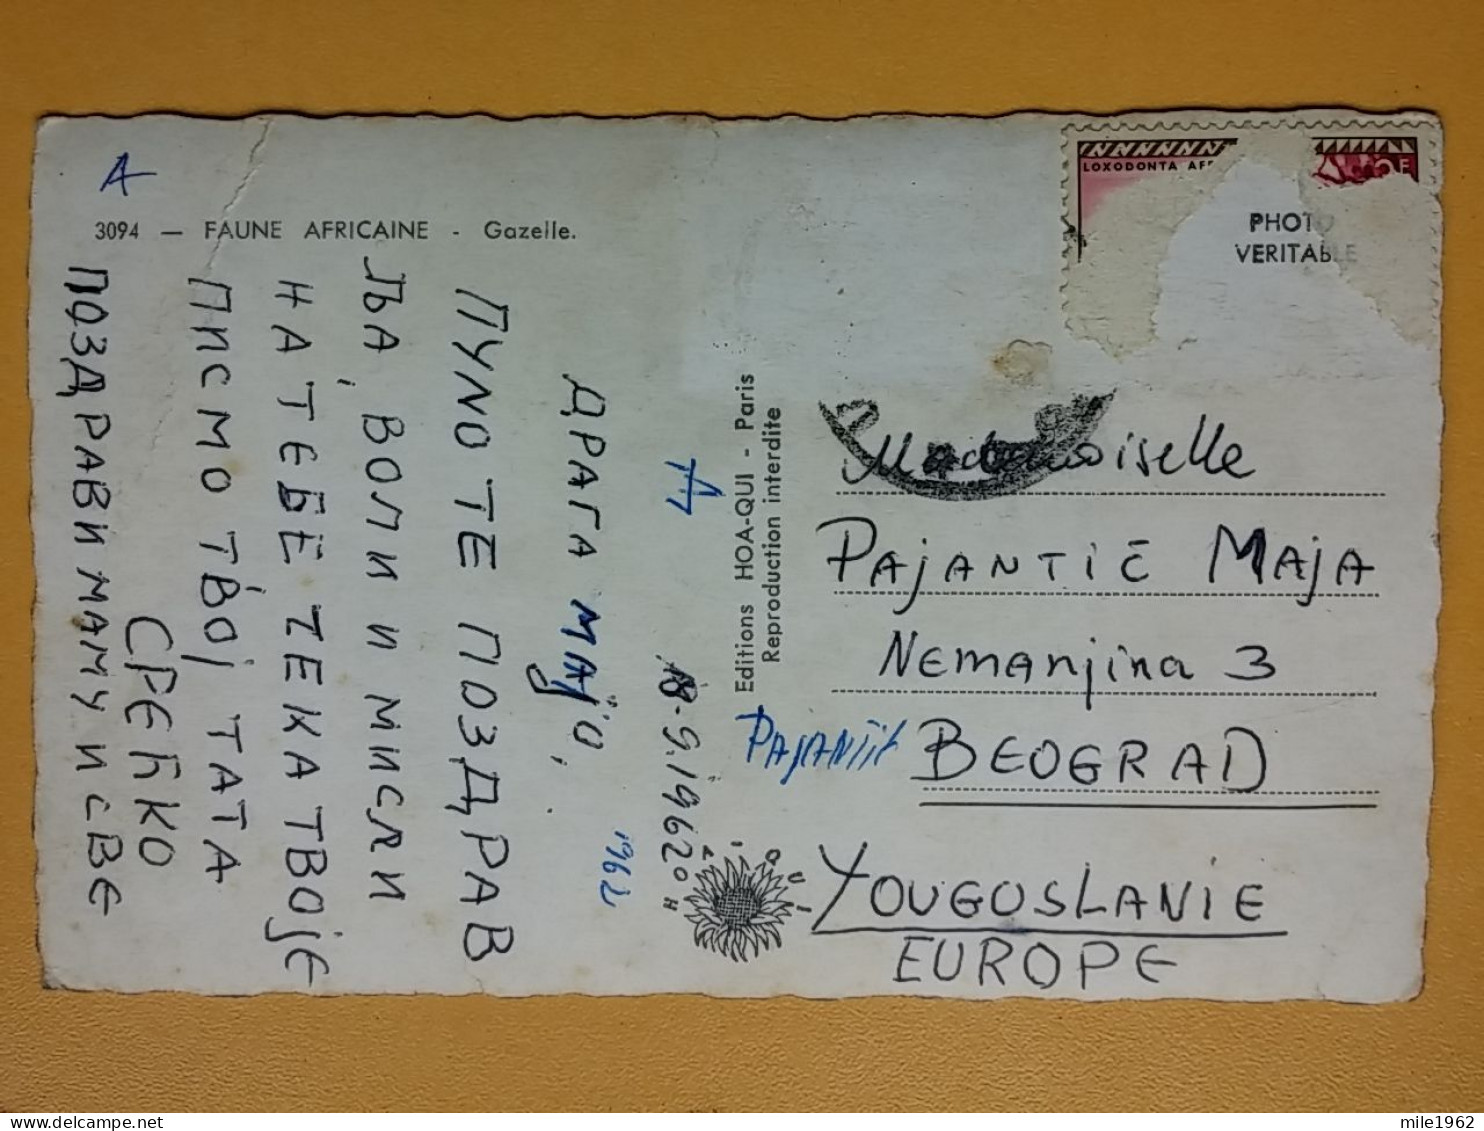 A
3094 — FAUNE AFRICAINE - Gazelle.
LOXODONTA AF
PHOTO
VERITABLE
18-9.1962
ДРАГА МАЈО,
ПУNО ТЕ ПОЗДРАВ
ЉА, ВОЛИ И МИСЛИ
НА ТЕБЕ ТЕКА ТВОЈЕ
ПИСМО ТВОЈ ТАТА
СРЕЋКО
ПОЗДРАВИ МАМУ И СВЕ
A
1962
Editions HOA-QUI - Paris
Reproduction interdite
HOA QUI
Mademoiselle
PAJANTIĆ MAJA
NEMANJINA 3
BEOGRAD
YOUGOSLAVIE
EUROPE
mile1962